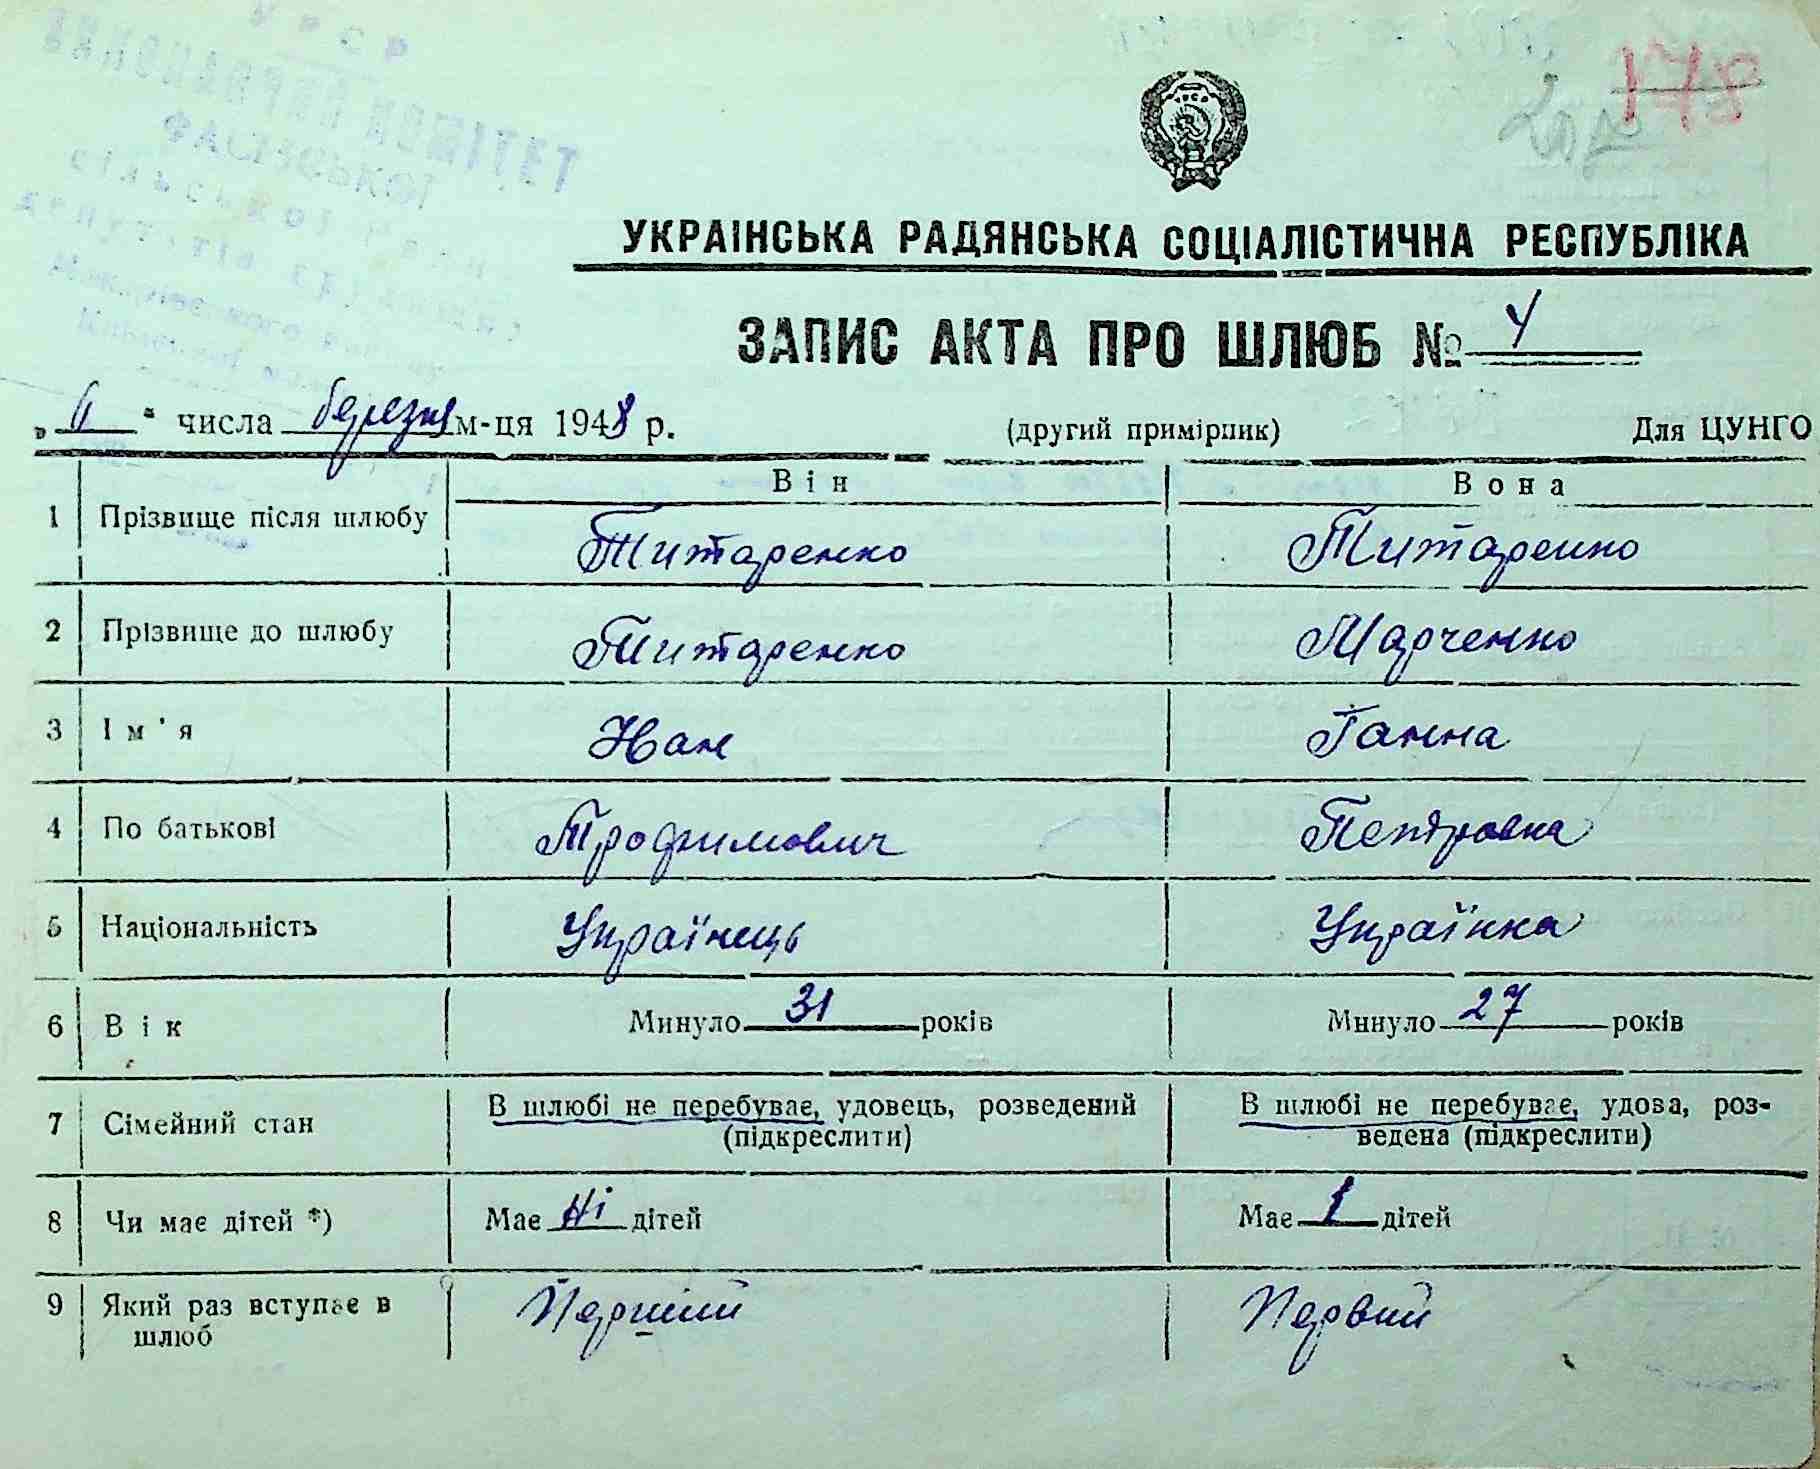 178
УКРАІНСЬКА РАДЯНСЬКА СОЦІАЛІСТИЧНА РЕСПУБЛІКА
ЗАПИС АКТА ПРО ШЛЮБ № 4
„ 6 “ числа березня м-ця 1948 р. (другий примірник) Для ЦУНГО
Він Вона
1 Прізвище після шлюбу Титаренко Титаренко
2 Прізвище до шлюбу Титаренко Марченко
3 Ім'я Иван Ганна
4 По батькові Трофимович Петровна
5 Національність Українець Українка
6 Вік Минуло 31 років Минуло 27 років
7 Сімейний стан В шлюбі не перебуває, удовець, розведений В шлюбі не перебуває, удова, роз-
(підкреслити) ведена (підкреслити)
8 Чи має дітей *) Має Ні дітей Має 1 дітей
9 Який раз вступає в Перший Первий
шлюб